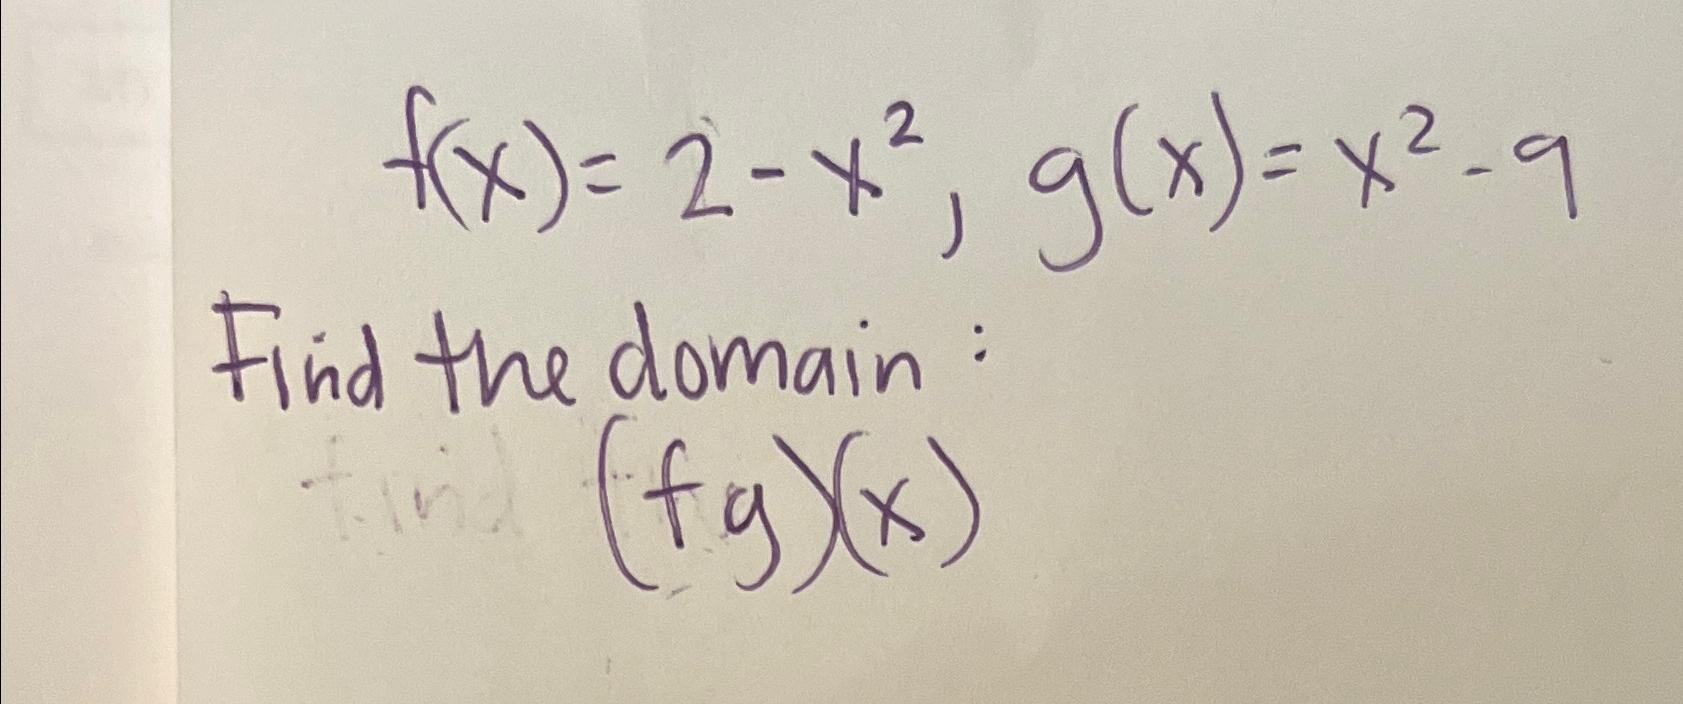 f(x) = 2 - x², g(x) = x² - 9
Find the domain :
find (fg)(x)